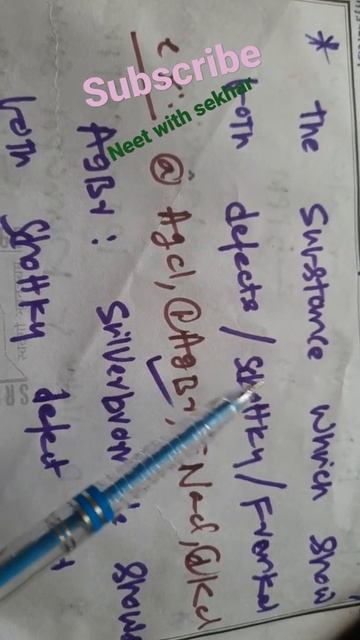 * The Substance which show
both defects / Shottky / Frenkel
@ Agcl, @ AgBr, Nacl, @ Kcl
AgBr : Silverbrom show
both Shottky defect
Subscribe
Neet with sekhar